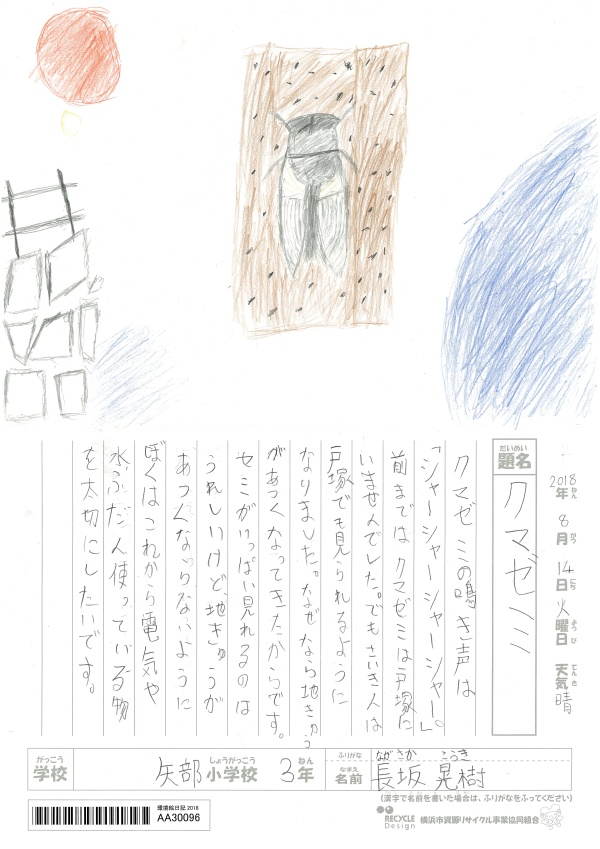 2018年ねん
8月がつ
14日にち
火曜日ようび
天気てんき
晴
だいめい
題名
クマゼミ
クマゼミの鳴き声は
「シャーシャーシャーシャー。」
前までは クマゼミは戸塚に
いませんでした。でもさいき人は
戸塚でも見られるように
なりました。なぜなら地きゅう
があつくなってきたからです。
セミがいっぱい見れるのは
うれしいけど、地きゅうが
あつくならないように
ぼくはこれから電気や
水、ふだん使っている物
を大切にしたいです。
がっこう
学校
矢部
しょうがっこう
小学校
3年ねん
ふりがな
ながさか こうき
なまえ
名前
長坂 晃樹
(漢字で名前を書いた場合は、ふりがなをふってください)
環境絵日記 2018
AA30096
RECYCLE
Design
横浜市資源リサイクル事業協同組合